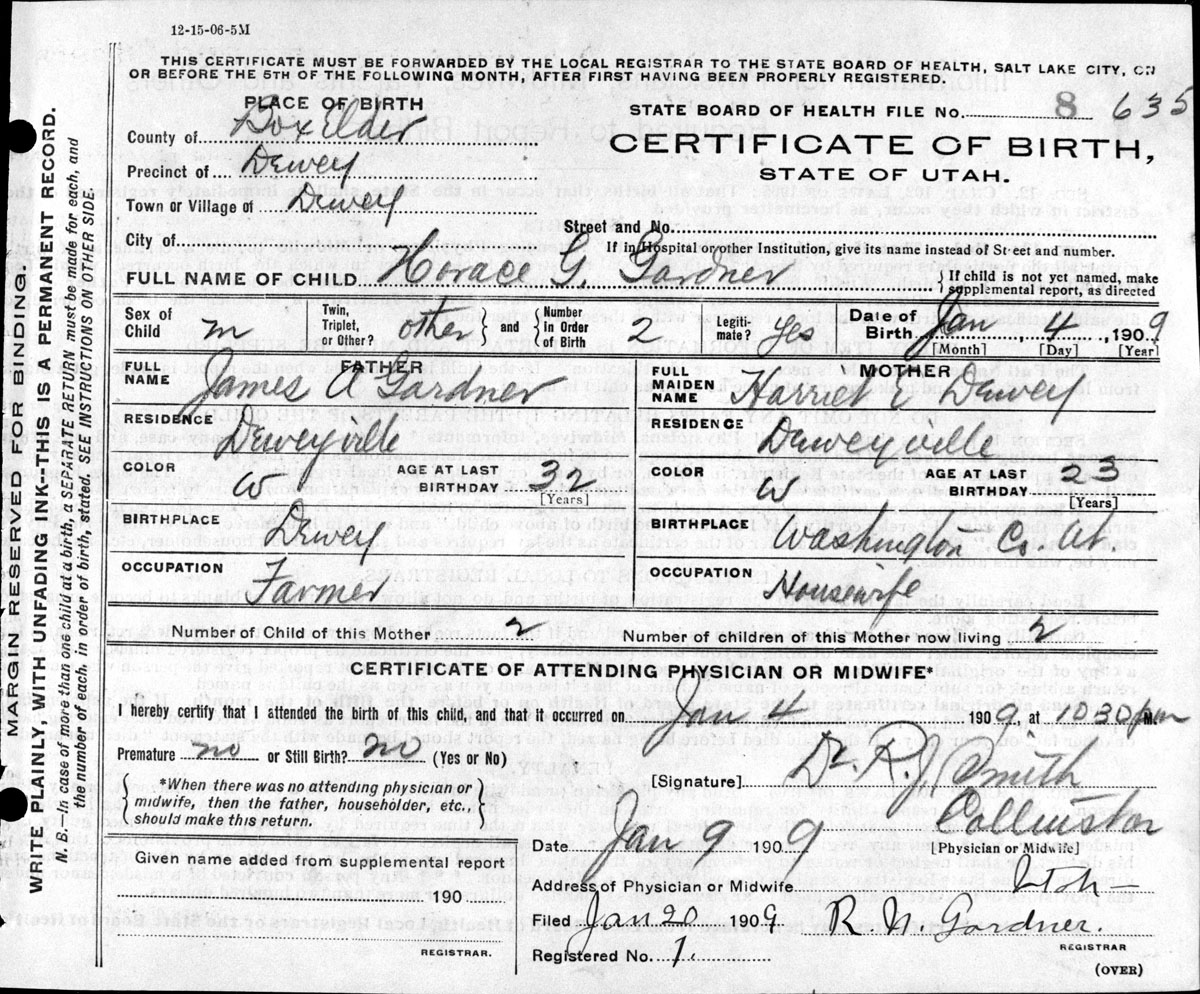 12-15-06-5M
THIS CERTIFICATE MUST BE FORWARDED BY THE LOCAL REGISTRAR TO THE STATE BOARD OF HEALTH, SALT LAKE CITY, ON
OR BEFORE THE 5TH OF THE FOLLOWING MONTH, AFTER FIRST HAVING BEEN PROPERLY REGISTERED.
PLACE OF BIRTH
STATE BOARD OF HEALTH FILE NO. 8 635
County of Box Elder
CERTIFICATE OF BIRTH,
Precinct of Dewey
STATE OF UTAH.
Town or Village of Dewey
Street and No.
City of
If in Hospital or other Institution, give its name instead of Street and number.
FULL NAME OF CHILD Horace G. Gardner
{If child is not yet named, make
supplemental report, as directed
Sex of Child m
Twin, Triplet, or Other? other
} and {
Number in Order of Birth 2
Legiti-mate? yes
Date of Birth Jan 4, 1909
[Month] [Day] [Year]
FATHER
FULL NAME James A Gardner
MOTHER
FULL MAIDEN NAME Harriet E Dewey
RESIDENCE Deweyville
RESIDENCE Deweyville
COLOR W
AGE AT LAST BIRTHDAY 32
[Years]
COLOR W
AGE AT LAST BIRTHDAY 23
[Years]
BIRTHPLACE Dewey
BIRTHPLACE Washington Co. Ut.
OCCUPATION Farmer
OCCUPATION Housewife
Number of Child of this Mother 2
Number of children of this Mother now living 2
CERTIFICATE OF ATTENDING PHYSICIAN OR MIDWIFE*
I hereby certify that I attended the birth of this child, and that it occurred on Jan 4 1909, at 1030 pm M.
Premature no or Still Birth? no (Yes or No)
[Signature] Dr. R. J. Smith
{*When there was no attending physician or
midwife, then the father, householder, etc.,
should make this return.}
Collinston
Date Jan 9 1909
[Physician or Midwife]
Given name added from supplemental report
190
REGISTRAR.
Address of Physician or Midwife Utah
Filed Jan 20 1909
R. N. Gardner.
REGISTRAR
Registered No. 1
(OVER)
MARGIN RESERVED FOR BINDING.
WRITE PLAINLY WITH UNFADING INK—THIS IS A PERMANENT RECORD.
N. B.—In case of more than one child at a birth, a SEPARATE RETURN must be made for each, and
the number of each, in order of birth, stated. SEE INSTRUCTIONS ON OTHER SIDE.